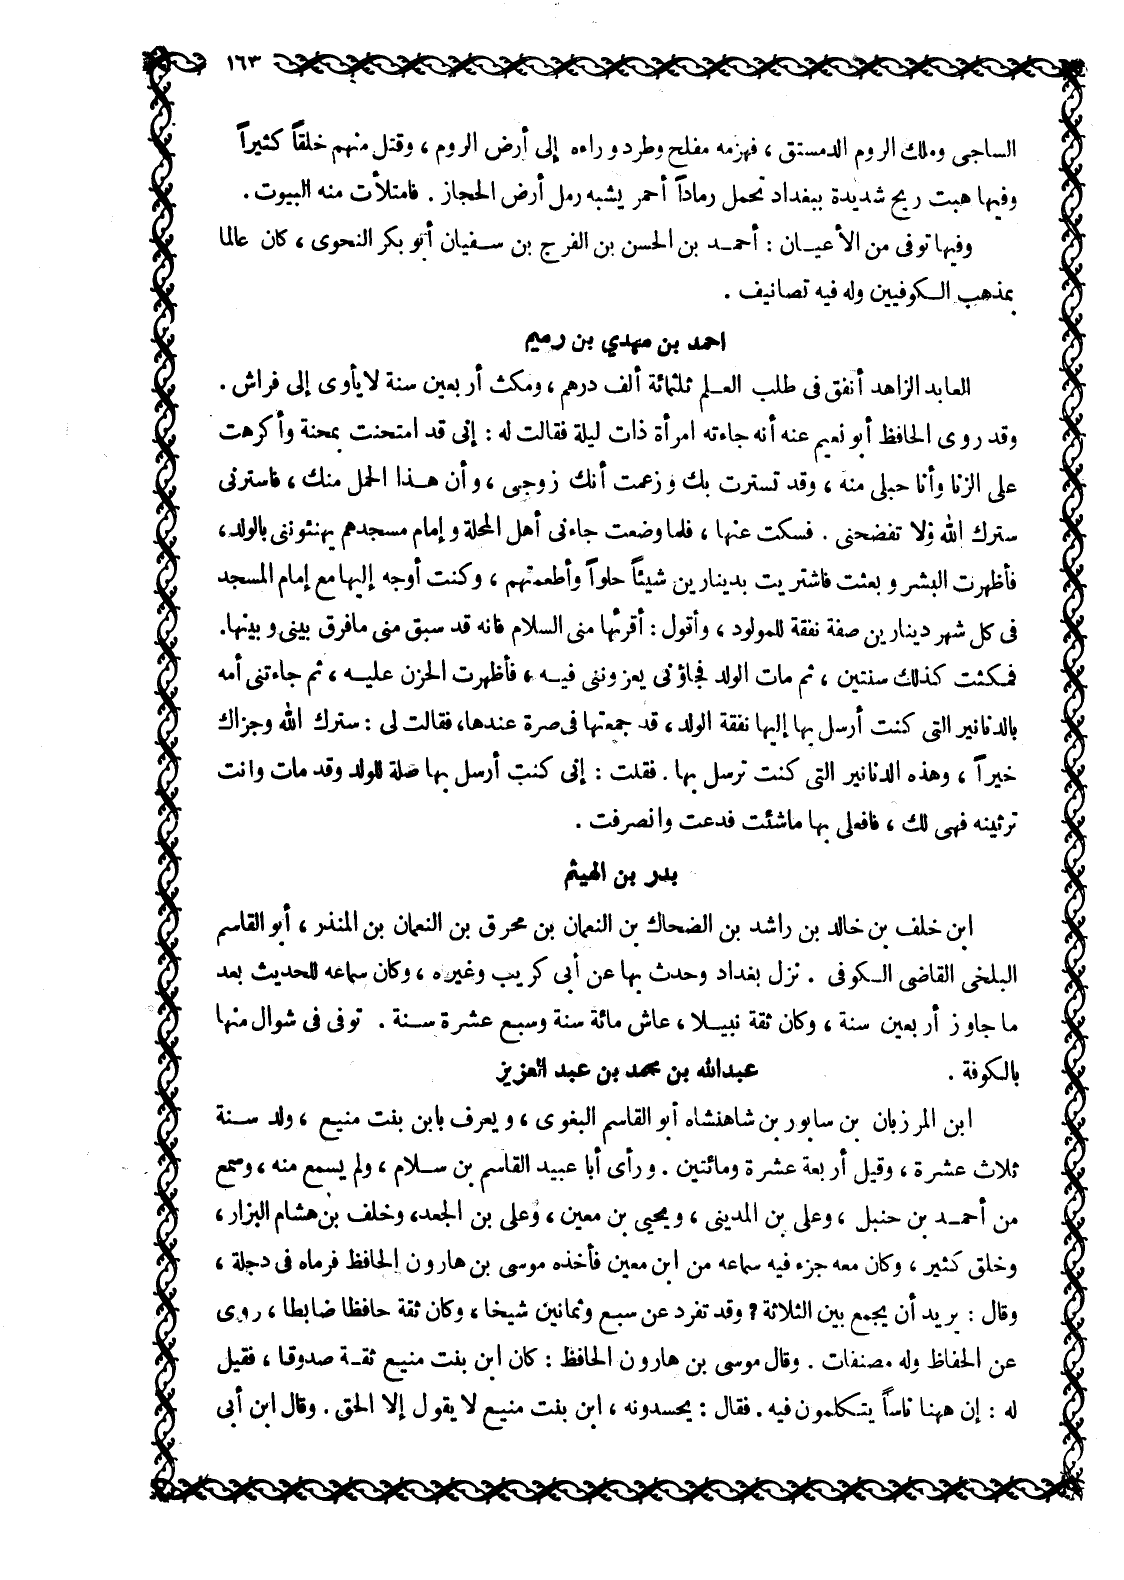 ١٦٣
الساجى وملك الروم الدمستق ، فهزمه مفلح وطرد وراءه إلى أرض الروم ، وقتل منهم خلقاً كثيراً
وفيها هبت ريح شديدة ببغداد تحمل رماداً أحمر يشبه رمل أرض الحجاز . فامتلأت منه البيوت .
وفيها توفى من الأعيـان : أحمـد بن الحسن بن الفرج بن سـفيان أبو بكر النحوى ، كان عالما
بمذهب الـكوفيين وله فيه تصانيف .
احمد بن مهدي بن رميم
العابد الزاهد أنفق فى طلب العـلم ثلثمائة ألف درهم ، ومكث أربعين سنة لا يأوى إلى فراش .
وقد روى الحافظ أبو نعيم عنه أنه جاءته امرأة ذات ليلة فقالت له : إنى قد امتحنت بمحنة وأكرهت
على الزنا وأنا حبلى منه ، وقد تسترت بك وزعمت أنك زوجى ، وأن هـذا الحمل منك ، فاسترنى
سترك الله ولا تفضحنى . فسكت عنها ، فلما وضعت جاءنى أهل المحلة وإمام مسجدهم يهنئوننى بالولد ،
فأظهرت البشر وبعثت فاشتريت بدينارين شيئاً حلواً وأطعمتهم ، وكنت أوجه إليها مع إمام المسجد
فى كل شهر دينارين صفة نفقة للمولود ، وأقول : أقرئها منى السلام فانه قد سبق منى مافرق بينى وبينها.
فمكثت كذلك سنتين ، ثم مات الولد فجاؤنى يعزوننى فيـه ، فأظهرت الحزن عليـه ، ثم جاءتنى أمه
بالدنانير التى كنت أرسل بها إليها نفقة الولد ، قد جمعتها فى صرة عندها، فقالت لى : سترك الله وجزاك
خيراً ، وهذه الدنانير التى كنت ترسل بها . فقلت : إنى كنت أرسل بها صلة للولد وقد مات وانت
ترثينه فهى لك ، فافعلى بها ماشئت فدعت وانصرفت .
بدر بن الهيثم
ابن خلف بن خالد بن راشد بن الضحاك بن النعمان بن محرق بن النعمان بن المنذر ، أبو القاسم
البلخى القاضى الـكوفى . نزل بغداد وحدث بها عن أبى كريب وغيره ، وكان سماعه للحديث بعد
ما جاوز أربعين سنة ، وكان ثقة نبيـلا ، عاش مائة سنة وسبع عشرة سـنة . توفى فى شوال منها
بالـكوفة .
عبدالله بن محمد بن عبد العزيز
ابن المرزبان بن سابور بن شاهنشاه أبو القاسم البغوى ، ويعرف بابن بنت منيـع ، ولد سـنة
ثلاث عشرة ، وقيل أربعة عشرة ومائتين . ورأى أبا عبيد القاسم بن سـلام ، ولم يسمع منه ، وسمع
من أحمـد بن حنبل ، وعلى بن المدينى ، ويحيى بن معين ، وعلى بن الجعد، وخلف بن هشام البزار ،
وخلق كثير ، وكان معه جزء فيه سماعه من ابن معين فأخذه موسى بن هارون الحافظ فرماه فى دجلة ،
وقال : يريد أن يجمع بين الثلاثة ؟ وقد تفرد عن سبع وثمانين شيخا ، وكان ثقة حافظا ضابطا ، روى
عن الحفاظ وله مصنفات . وقال موسى بن هارون الحافظ : كان ابن بنت منيـع ثقـة صدوقا ، فقيل
له : إن ههنا ناساً يتـكلمون فيه . فقال : يحسدونه ، ابن بنت منيـع لا يقول إلا الحق . وقال ابن أبى